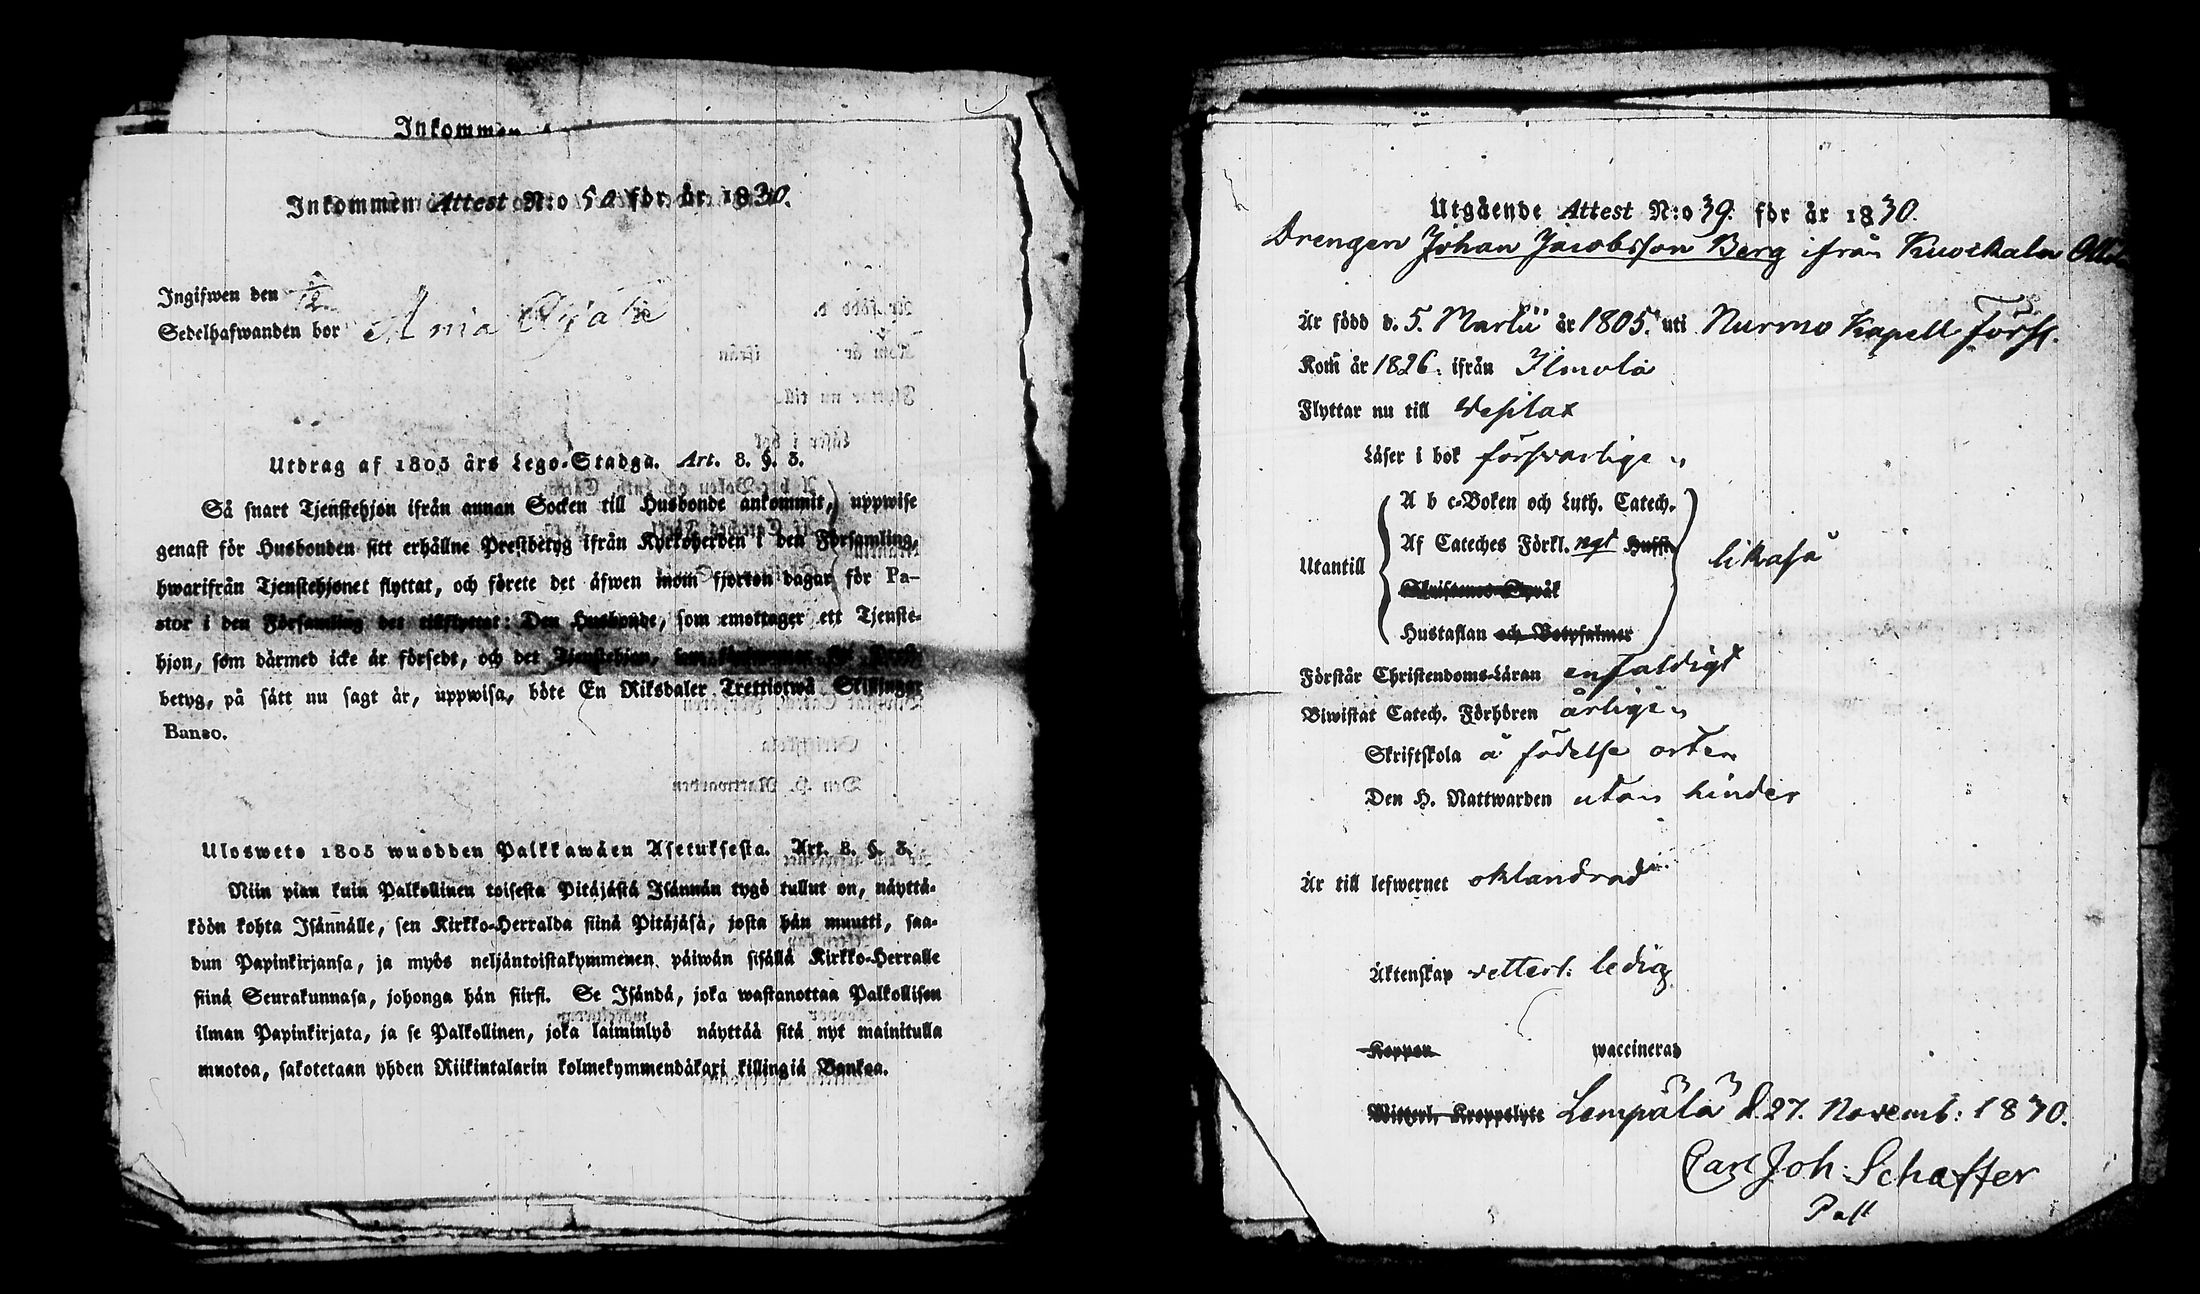 Inkommen
Inkommen Attest N:o 50 för år 1830.
Ingifwen den 12
Sedelhafwanden bor
Utdrag af 1805 års Lego-Stadga. Art. 8. §. 3.
Så snart Tjenstehjon ifrån annan Socken till Husbonde ankommit, uppwise
genast för Husbonden sitt erhållne Prestbetyg ifrån Kyrkoherden i den Församling,
hwarifrån Tjenstehjonet flyttat, och förete det äfwen inom fjorton dagar för Pa-
stor i den Församling det tillflyttat: Den Husbonde, som emottager ett Tjenste-
hjon, som därmed icke är försedt, och det Tjenstehjon,
betyg, på sätt nu sagt är, uppwisa, böte En Riksdaler Trettiotwå Skillingar
Banco.
Ulosweto 1805 wuodden Palkkawäen Asetuksesta. Art. 8. §. 3.
Niin pian kuin Palkollinen toisesta Pitäjästä Isännän tygö tullut on, näyttä-
köön kohta Isännälle, sen Kirkko-Herralda siinä Pitäjäsä, josta hän muutti, saa-
dun Papinkirjansa, ja myös neljäntoistakymmenen päiwän sisällä Kirkko-Herralle
siinä Seurakunnasa, johonga hän siirsi. Se Isändä, joka wastanottaa Palkollisen
ilman Papinkirjata, ja se Palkollinen, joka laiminlyö näyttää sitä nyt mainitulla
muotoa, sakotetaan yhden Riikintalarin kolmekymmendäkaxi killingiä Bankoa.
Utgående Attest N:o 39. för år 1830.
Drengen Johan Jacobsson Berg ifrån Kuockala
Är född d. 5. Martii år 1805. uti Nurmo Kapell Förs.
Kom år 1826. ifrån Ilmola
Flyttar nu till Vesilax
Läser i bok försvarligen
A b c-Boken och Luth. Catech.
Af Cateches Förkl. ngt Husst.
Utantill
likaså
Skriftenes Språk
Hustaflan och Botpsalmer
Förstår Christendoms-Läran enfaldigt
Biwistat Catech. Förhören årligen
Skriftskola å födelse orten
Den H. Nattwarden utan hinder
Är till lefwernet oklandrad
Äktenskap vetterl. ledig
Koppor waccinerad
Witterl. Kroppslyte Lempälä d. 27. Novemb: 1830.
Carl Joh: Schaffer
Past